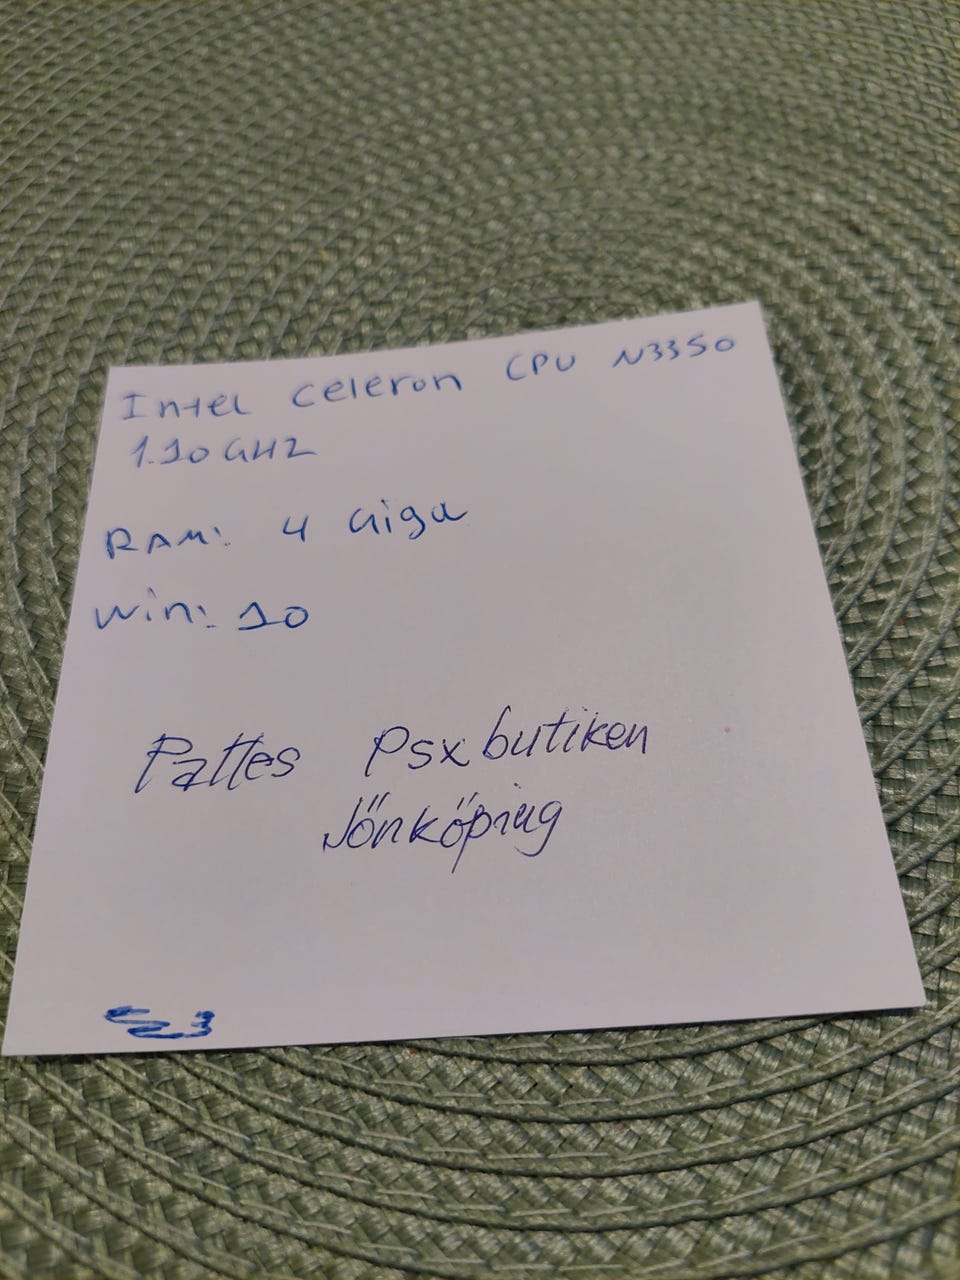 Intel Celeron CPU N3350
1.10 GHZ
RAM: 4 Giga
Win: 10
Pattes Psxbutiken
Jönköping